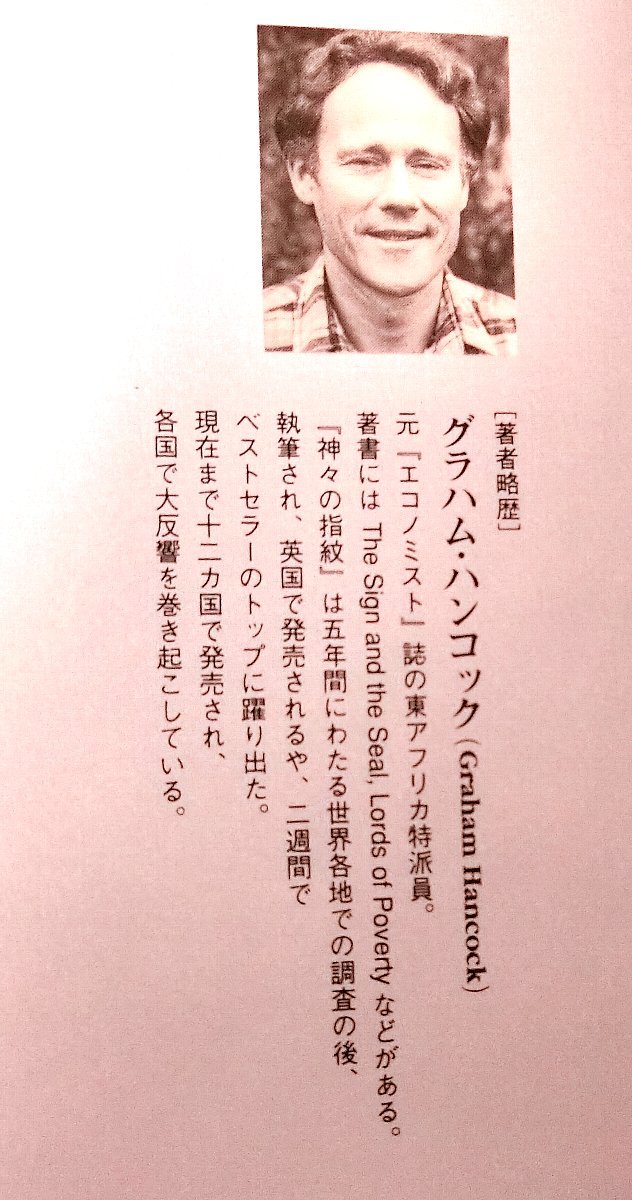 [著者略歴]
グラハム・ハンコック(Graham Hancock)
元『エコノミスト』誌の東アフリカ特派員。
著書には The Sign and the Seal, Lords of Poverty などがある。
『神々の指紋』は五年間にわたる世界各地での調査の後、
執筆され、英国で発売されるや、二週間で
ベストセラーのトップに躍り出た。
現在まで十二カ国で発売され、
各国で大反響を巻き起こしている。